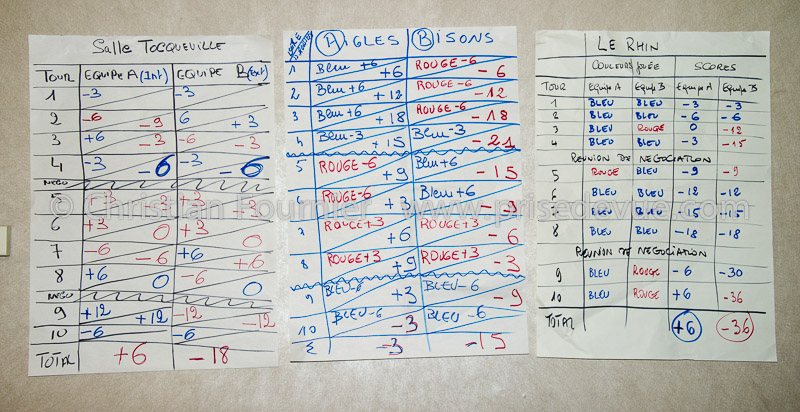 Salle Tocqueville
TOUR EQUIPE A (Int) EQUIPE B (Ext)
1 -3 -3
2 -6 -9 6 +3
3 +6 -3 -6 -3
4 -3 -6 -3 -6
NEGO
5 -3 +3
6 +3 0 +3 0
7 -6 -6 +6 +6
8 +6 0 -6 0
NEGO
9 +12 +12 -12 -12
10 -6 -6
TOTAL +6 -18
AIGLES BISONS
1 Bleu +6 +6 ROUGE-6 -6
2 Bleu +6 +12 ROUGE-6 -12
3 Bleu+6 +18 ROUGE-6 -18
4 Bleu-3 +15 Bleu-3 -21
5 ROUGE-6 +9 Bleu+6 -15
6 ROUGE-6 +3 Bleu+6 -9
7 ROUGE+3 +6 ROUGE+3 -6
8 ROUGE+3 +9 ROUGE+3 -3
9 BLEU-6 +3 BLEU-6 -9
10 BLEU-6 -3 BLEU-6 -15
Σ -3 -15
LE RHIN
COULEUR JOUÉE SCORES
TOUR Equipe A Equipe B Equipe A Equipe B
1 BLEU BLEU -3 -3
2 BLEU BLEU -6 -6
3 BLEU ROUGE 0 -12
4 BLEU BLEU -3 -15
REUNION DE NEGOCIATION
5 ROUGE BLEU -9 -9
6 BLEU BLEU -12 -12
7 BLEU BLEU -15 -15
8 BLEU BLEU -18 -18
REUNION DE NEGOCIATION
9 BLEU ROUGE -6 -30
10 BLEU ROUGE +6 -36
TOTAL +6 -36
© Christian Fournier www.prisedevue.com